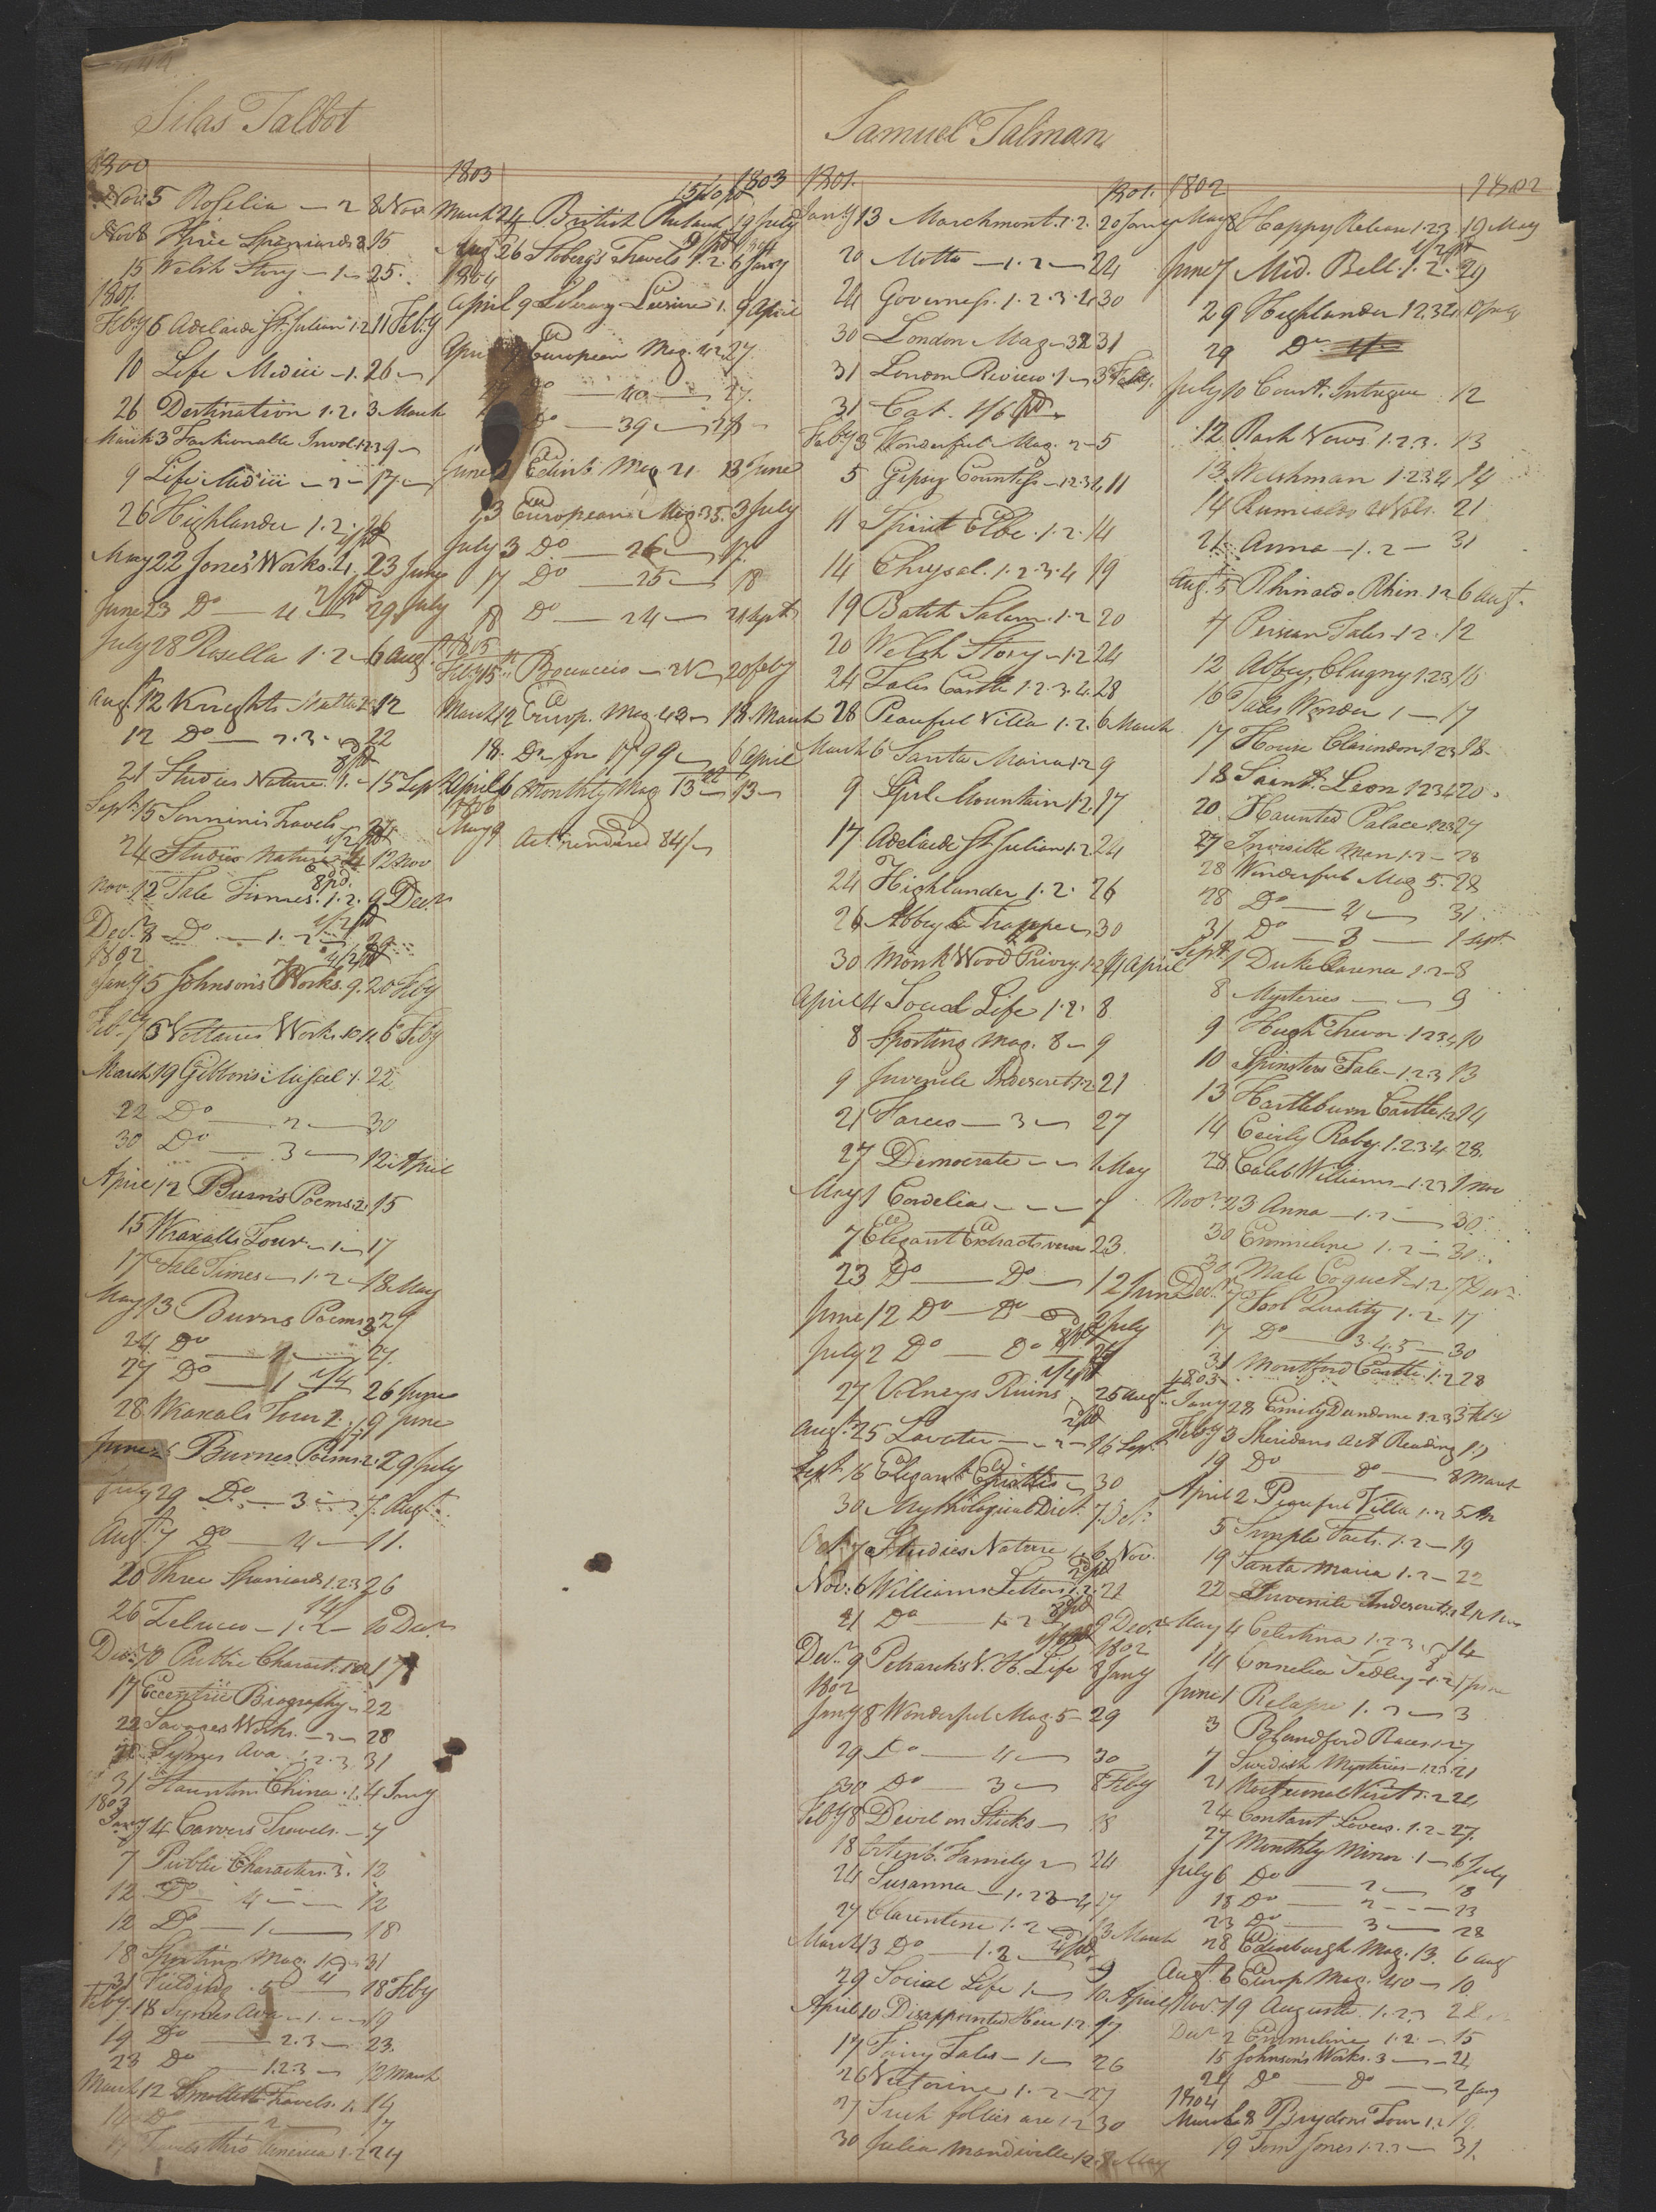 Silas Talbot
1800
Nov 5 Roselia — 2 8 Nov
Nov 8 Three Spaniards 3 15
15 Welsh Story — 1 — 25
1801
Feby 6 Adelaide St. Julian 1.2 11 Feby
10 Life Medici — 1. 26
26 Destination 1.2. 3 March
March 3 Fashionable Invol. 1.2.3 9
9 Life Medici — 2 — 17
26 Highlander 1.2. 26
May 22 Jones' Works. 4. 23 June
June 23 Do — 4 29 July
July 28 Rosella 1.2 — 6 Aug
Augt 12 Knights Malta 2 12
12 Do — 2.3. 22
21 Studies Nature. 1. — 15 Sept
Sept 15 Sonninis Travels
24 Studies Nature 12 Nov
Nov. 12 Tale Times. 1.2. 9 Decr
Decr 8 Do — 1. 2
1802
Jany 5 Johnson's Works. 9. 20 Feby
Voltaires Works 6 Feby
March 19 Gibbon's Miscel. 1. 22
22 Do — 2 — 30
30 Do — 3 — 12 April
April 12 Burn's Poems. 2. 15
15 Wraxalls Tour — 1 — 17
17 Tale Times — 1.2 — 18 May
May 13 Burns Poems 3 29
24 Do — 1 — 27
27 Do — 1 1/4 26 June
28 Wraxals Tour 2. 19 June
June Burnes Poems. 2. 29 July
July 29 Do — 3 — 7 Augt
Augt 7 Do — 4 — 11.
20 Three Spaniards 1.2.3 26
26 Zeluco — 1.2 — 10 Decr
Decr 10 Public Charact. 17
17 Eccentric Biography — 22
22 Savages Works — 2 — 28
28 Symes Ava 1.2.3 31
31 Stauntons China. 1. 4 Jany
1803
Jany 4 Carvers Travels. — 7
7 Public Characters. 3. 12
12 Do 4 — 12
12 Do — 1 — 18
18 Sporting Mag. 1 31
31 Fielding . 5 18 Feby
Feby 18 Symes Ava — 1. — 19
19 Do — 2.3 — 23.
23 Do — 1.2.3 — 12 March
March 12 Smolletts Travels. 1. 14
14 Do — 2 — 17
17 Travels thro' America 1.2 24
1803 1803
March 24 British 19 July
Aug 26 Stoberg's Travels 1.2. 6 Jany
1804
April 9 Literary Leisure 1. 9 April
April European Mag. 42 27.
Do — 40 — 27.
Do — 39 —
June Edinb. Mag 21 13 June
13 European Mag. 35. 3 July
July 3 Do — 26 — 17
17 Do — 25 — 18
18 Do — 24 —
1805
Feby 15 Bocaccio — 20 Feby
March 12 Europ. Mag. 43 — 18 March
18. Do for 1799 — 6 April
April 6 Monthly Mag 13th — 13
1806
May 9 Act. rendered 84/
Samuel Talman
1801. 1801.
Jany 13 Marchmont. 1.2. 20 Jany
20 Motto — 1.2 — 24
24 Governess. 1.2.3.4 30
30 London Mag — 32 31
31 London Review. 1 — 3 Feby.
31 Cat. 1/6 pd
Feby 3 Wonderful Mag. 2 — 5
5 Gipsy Countess — 1.2.3.4 11
11 Spirit Elbe. 1.2. 14
14 Chrysal. 1.2.3.4 19
19 Batch Salam. 1.2 20
20 Welsh Story — 1.2 24
24 Tales Castle 1.2.3.4. 28
28 Peauful Villa 1.2. 6 March
March 6 Santa Maria 1.2 9
9 Girl Mountain 1.2. 17
17 Adelaide St Julian 1.2. 24
24 Highlander 1.2. 26
26 Abbey La Trappe — 30
30 Monk Wood Priory. 1.2 4 April
April 4 Social Life 1.2. 8
8 Sporting Mag. 8 — 9
9 Juvenile Indescret. 1.2 21
21 Farces — 3 — 27
27 Democrate — — 1 May
May 1 Cordelia — — — 7
7 Elegant Extracts verse 23
23 Do — Do — 12 June
June 12 Do — Do — 2 July
July 2 Do — Do
27 Volneys Ruins 25 Augt
Augt 25 Lavater — — 2 — 16 Sept
Sept 16 Elegant Epistles — 30
30 Mythological Dict. 7 Octr
Oct. 7 Studies Nature 1. 6 Nov.
Nov. 6 Williams Letters 1.2. 21
21 Do — 1.2 9 Decr
Decr 9 Petrarch's V. H. Life 8 Jany
1802 1802
Jany 8 Wonderful Mag 5 — 29
29 Do — 4 — 30
30 Do — 3 — 8 Feby
Feby 8 Devil on Sticks — 18
18 Ortenb. Family 2 — 24
24 Susanna — 1.2.3.4 27
27 Clarentine 1.2 — 13 March
March 13 Do — 1.2
29 Social Life 1 — 10 April
April 10 Disappointed Heir 1.2. 17
17 Fairy Tales — 1 — 26
26 Victorine 1.2 — 27
27 Such follies are 1.2 30
30 Julia Mandiville 1.2. 8 May
1802 1802
May 8 Happy Release 1.2.3. 19 May
June 7 Mid. Bell. 1.2. 29
29 Highlander 1.2.3.4 10 July
29 Do
July 10 Court Intrigue 12
12 Rash Vows. 1.2.3. 13
13 Welshman 1.2.3.4 14
14 Rumialdo 2 Vols. 21
21 Anna — 1.2 — 31
Aug. 5 Rhinaldo Rhin. 1.2 6 Augt
7 Persian Tales. 1.2. 12
12 Abbey Clugny 1.2.3 16
16 Tales Wonder 1 — 17
17 House Clarendon 1.2.3 18
18 Saint Leon 1.2.3.4 20
20 Haunted Palace 1.2.3 27
27 Invisible Man 1.2 — 28
28 Wonderful Mag 5. 28
28 Do — 4 — 31
31 Do — 3 — 1 Sept
Sept 1 Duke Clarence 1.2 — 8
8 Mysteries — — 9
9 Hugh Trevor 1.2.3.4 10
10 Spinsters Tale — 1.2.3 13
13 Hartleburn Castle 1.2 14
14 Cecily Raby. 1.2.3.4 28.
28 Caleb Williams — 1.2.3 1 Nov
Novr 23 Anna — 1.2 — 30
30 Emmeline 1.2 — 31
30 Male Coquet — 1.2. 7 Decr
Decr 7 Fool Quality 1.2. 17
17 Do — 3.4.5 — 30
31 Montford Castle. 1.2 28
1803
Jany 28 Emily Dundorne 1.2.3 3 Feby
Feby 3 Sheridans Art Reading 19
19 Do — Do — 8 March
April 2 Peauful Villa 1.2 5
5 Simple Facts. 1.2 — 19
19 Santa Maria 1.2 — 22
22 Juvenile Indescret.
May 4 Celestina 1.2.3. 14
14 Cornelia Sedley — 1.2 1 June
June 1 Relapse 1.2 — 3
3 Blandford Races 1.2 7
7 Swedish Mysteries — 1.2.3 21
21 Nocturnal Visit 1.2 24
24 Constant Lovers. 1.2 — 27.
27 Monthly Mirror. 1 — 6 July
July 6 Do — 2 — 18
18 Do — 2 — 23
23 Do — 3 — 28
28 Edenburgh Mag. 13. 6 Aug
Augt 6 Europ. Mag. 40 — 10
Novr 19 Augusta 1.2.3 28
Decr 2 Emmeline 1.2. — 15
15 Johnson's Works. 3 — 24
24 Do — Do — 2 Jany
1804
March 8 Brydone Tour 1.2 19
19 Tom Jones 1.2.3 — 31.